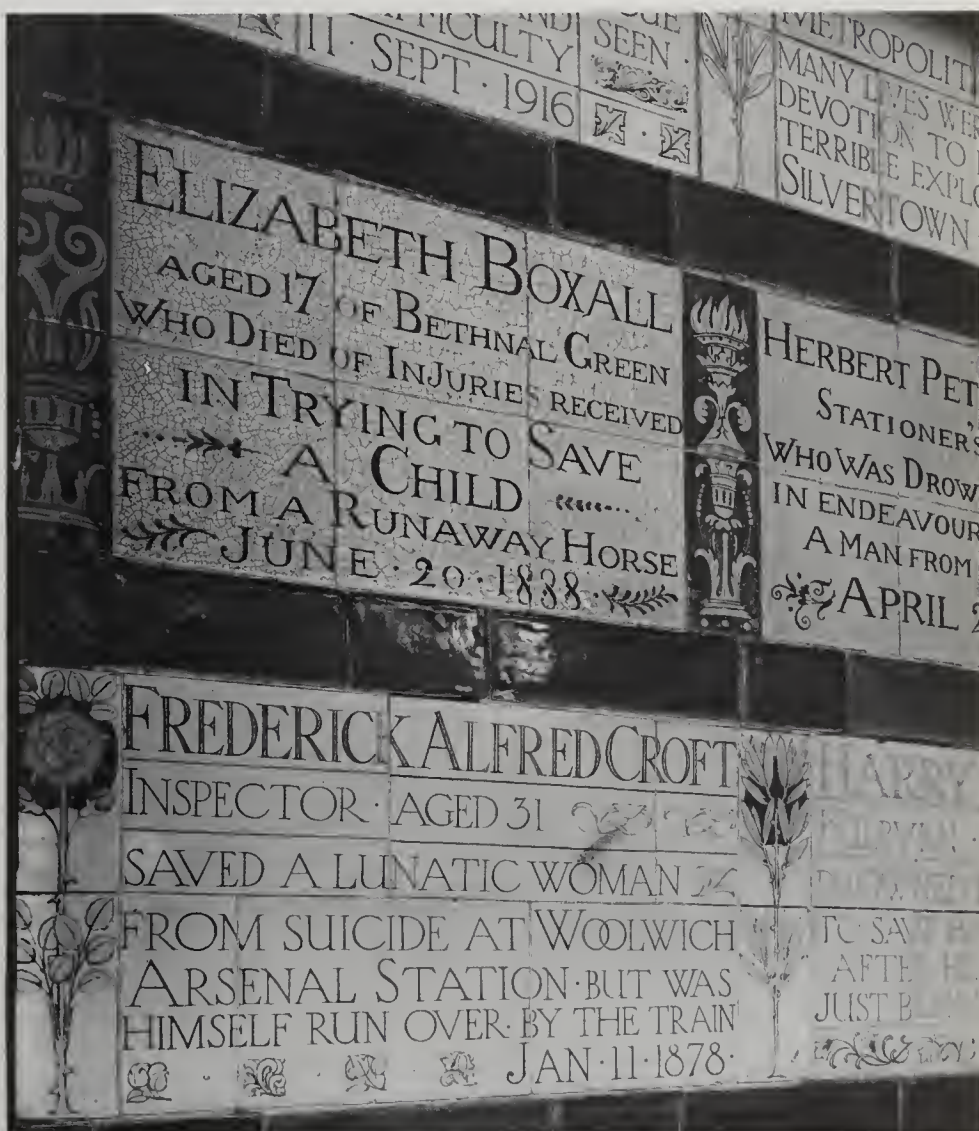 FICULTY
11 · SEPT · 1916
SEEN ·
METROPOLIT
MANY LIVES WE
DEVOTION TO
TERRIBLE EXPL
SILVERTOWN
ELIZABETH BOXALL
AGED 17 OF BETHNAL GREEN
WHO DIED OF INJURIES RECEIVED
IN TRYING TO SAVE
A CHILD
FROM A RUNAWAY HORSE
JUNE · 20 · 1888 ·
HERBERT PET
STATIONER'S
WHO WAS DROW
IN ENDEAVOUR
A MAN FROM
APRIL 2
FREDERICK ALFRED CROFT
INSPECTOR · AGED 31
SAVED A LUNATIC WOMAN
FROM SUICIDE AT WOOLWICH
ARSENAL STATION · BUT WAS
HIMSELF RUN OVER · BY THE TRAIN
JAN · 11 · 1878 ·
HARRY
TO SAV
AFTE
JUST B